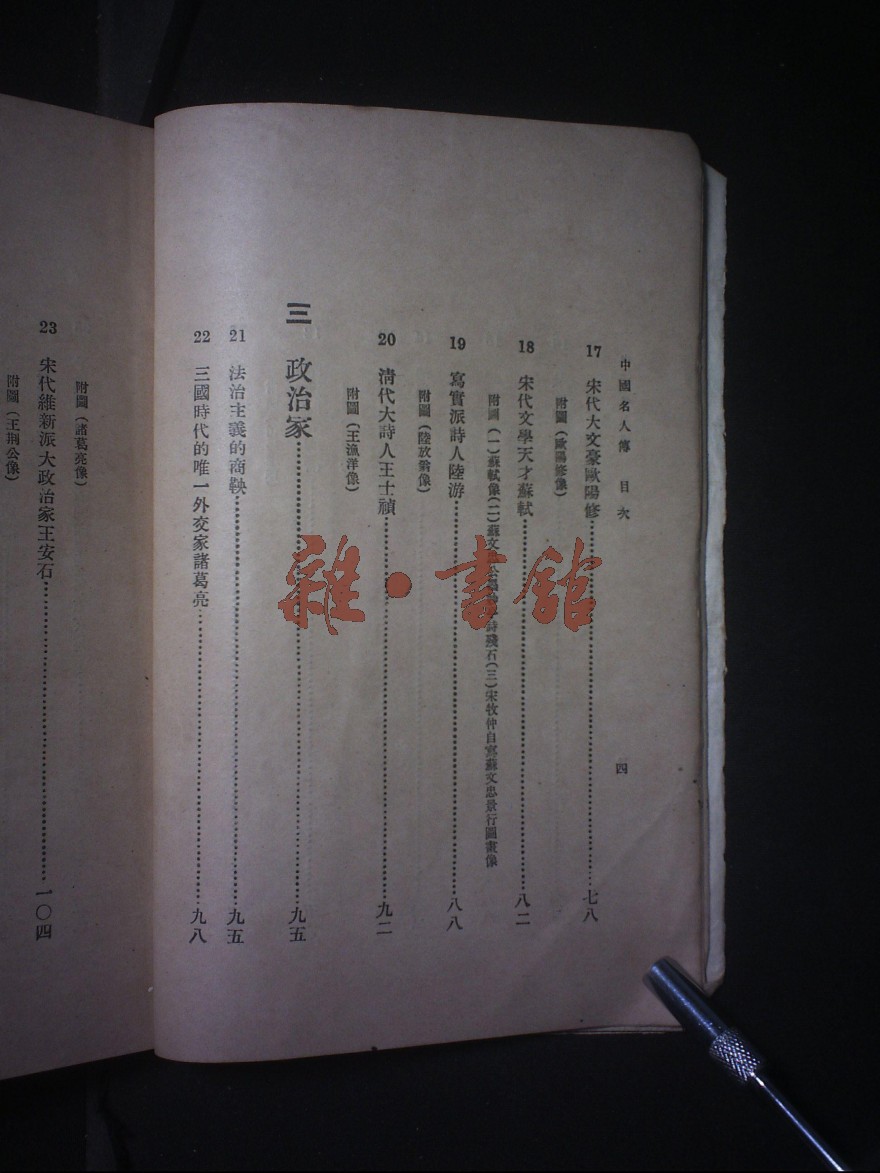 中國名人傳 目次
四
17 宋代大文豪歐陽修……七八
附圖(歐陽修像)
18 宋代文學天才蘇軾……八二
附圖(一)蘇軾像(二)蘇文 公 詩殘石(三)宋牧仲自寫蘇文忠景行圖畫像
19 寫實派詩人陸游……八八
附圖(陸放翁像)
20 清代大詩人王士禎……九二
附圖(王漁洋像)
三 政治家……九五
21 法治主義的商鞅……九五
22 三國時代的唯一外交家諸葛亮……九八
附圖(諸葛亮像)
23 宋代維新派大政治家王安石……一〇四
附圖(王荆公像)
雜·書館